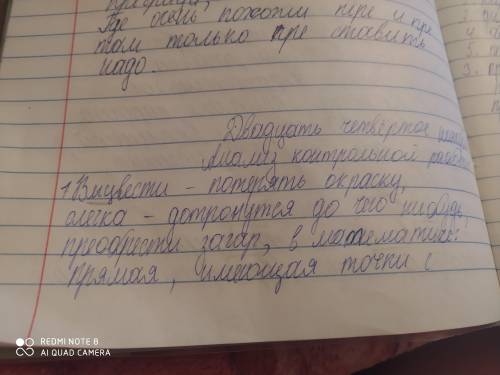 Где очень похожи пере и пре
там только пре ставить
надо.
Двадцать четвёртое
Анализ контрольной
1 Выцвести - потерять окраску,
слегка - дотронутся до чего нибудь,
преобрести загар, в математике:
прямая, имеющая точки
REDMI NOTE 8
AI QUAD CAMERA